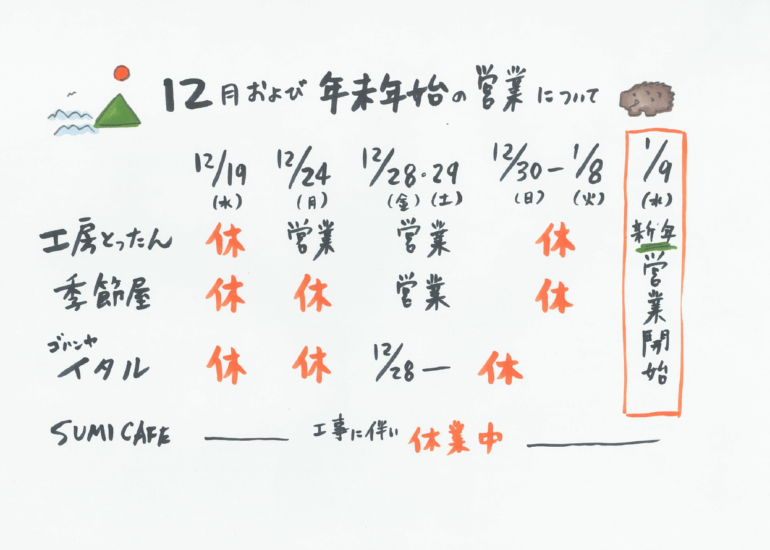 12月および年末年始の営業について
12/19 12/24 12/28・29 12/30-1/8 1/9
(水) (月) (金)(土) (日) (火) (水)
工房とったん 休 営業 営業 休
季節屋 休 休 営業 休
ゴハンヤ
イタル 休 休 12/28- 休
新年営業開始
SUMI CAFE 工事に伴い 休業中